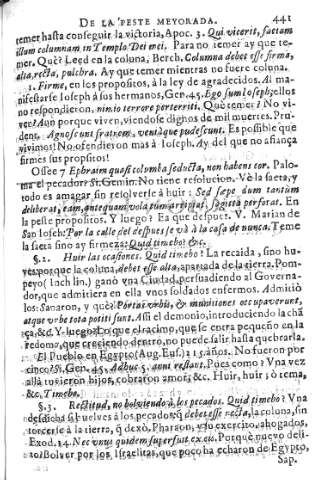 DE LA PESTE MEYORADA. 441
temer hasta conseguir la victoria, Apoc. 3. Qui vicerit, faciam
illum columnam in Templo Dei mei. Para no temer ay que te-
mer. Què? Leed en la coluna, Berch. Columna debet esse firma,
alta, recta, pulchra. Ay que temer mientras no fuere coluna.
1. Firme, en los propositos, à la ley de agradecidos. Al ma-
nifestarse Ioseph à sus hermanos, Gen. 45. Ego sum Ioseph; ellos
no respondieron, nimio terrore perterriti. Què temer? No vi-
ven? Aun porque viven, viendose dignos de mil muertes. Pru-
dent. Agnoscunt fratrem, pudescunt. Es possible que
vivimos! No ofendieron mas à Ioseph. Ay del que no afiança
firmes sus propositos!
Ossee 7 Ephraim quasi columba seducta, non habens cor. Palo-
ma el pecador? St. Gemin. No tiene resolucion. Ve la saeta, y
todo es amagar sin resolverse à huir: Sed sepe dum tantùm
deliberat, sagitta perforat. En
la peste propositos. Y luego? Ea que despues. V. Marian de
San Ioseh: Por la calle del despues se và à la casa de nunca. Teme
la saeta sino ay firmeza: Quid timebo? &c.
§. 2. Huir las ocasiones. Quid timebo? La recaida, sino hu-
yes, porque la coluna, debet esse alta, apartada de la tierra. Pom-
peyo (lach lin.) ganò vna Ciudad, persuadiendo al Governa-
dor, que admitiera en ella vnos soldados enfermos. Admitiò
los: Sanaron, y què? Portas vrbis, & munitiones occupaverunt,
atque vrbe tota potiti sunt. Assi el demonio, introduciendo la cha
ça, &c. Y luego? Lo que el racimo, que se encra pequeño en la
redoma, que creciendo dentro, no puede salir hasta quebrarla.
El Pueblo en Egypto (Aug. Eus.) 215. años. No fueron por
cinco? St. Gen. 45. Adhuc 5. anni restant. Pues como? Vna vez
allà tuvieron hijos, cobraron amor, &c. Huir, huir; ò tema,
&c. Timebo.
§. 3. Rectitud, no bolviendo à los pecados. Quid timebo? Vna
desdicha si buelves à los pecados: q̃ debet esse recta, la coluna, sin
torcerse à la tierra, q̃ dexò. Pharaon, y su exercito, ahogados,
Exod. 14. Nec vnus quidem superfuit ex eis. Porquè nuevo deli-
to? Bolver por los Israelitas, que poco ha echaron de Egypto,
Sap.